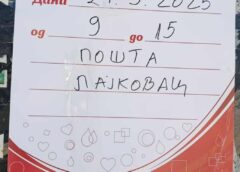 Дана 21.5.2025
од 9 до 15
ПОШТА
ЛАЈКОВАЦ